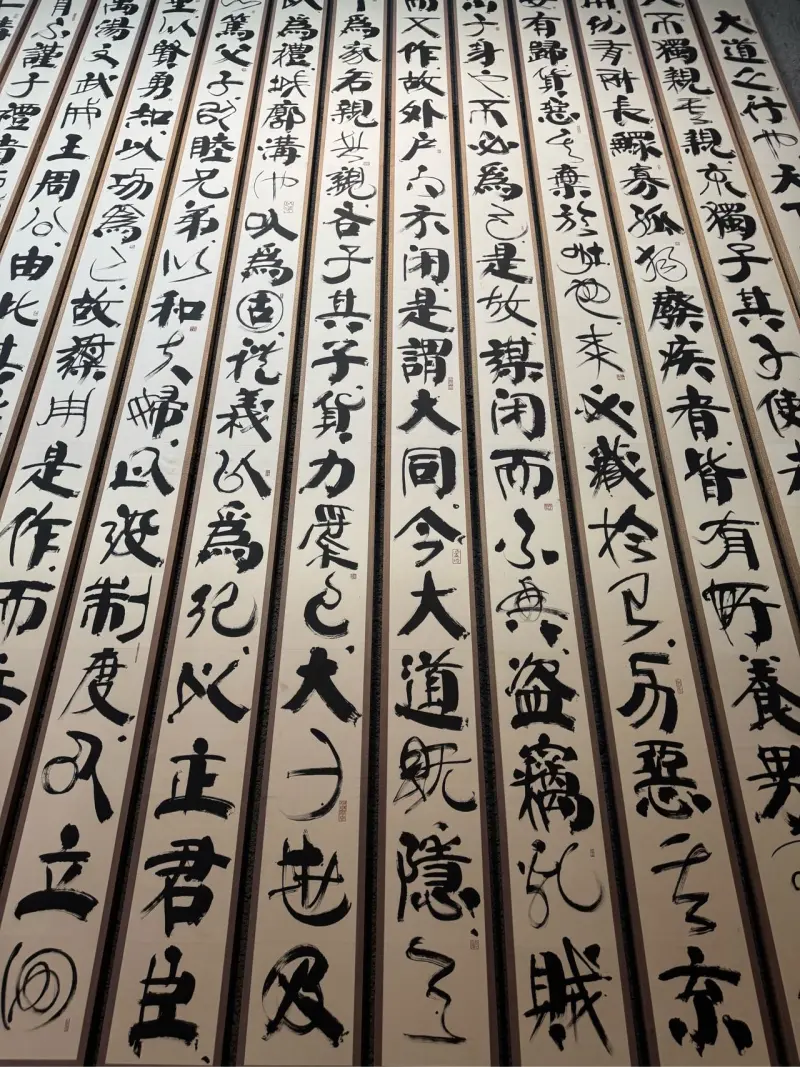 大道之行也天下
人不獨親其親不獨子其子使老
用幼有所長鰥寡孤獨廢疾者皆有所養男
女有歸貨惡其棄於地也不必藏於己力惡其不
於身也不必為己是故謀閉而不興盜竊亂賊
而不作故外戶而不閉是謂大同今大道既隱天
下為家各親其親各子其子貨力為己大人世及
以為禮城郭溝池以為固禮義以為紀以正君臣
篤父子以睦兄弟以和夫婦以設制度以立田
里以賢勇知以功為己故謀用是作而兵
禹湯文武成王周公由此其
有不謹于禮者